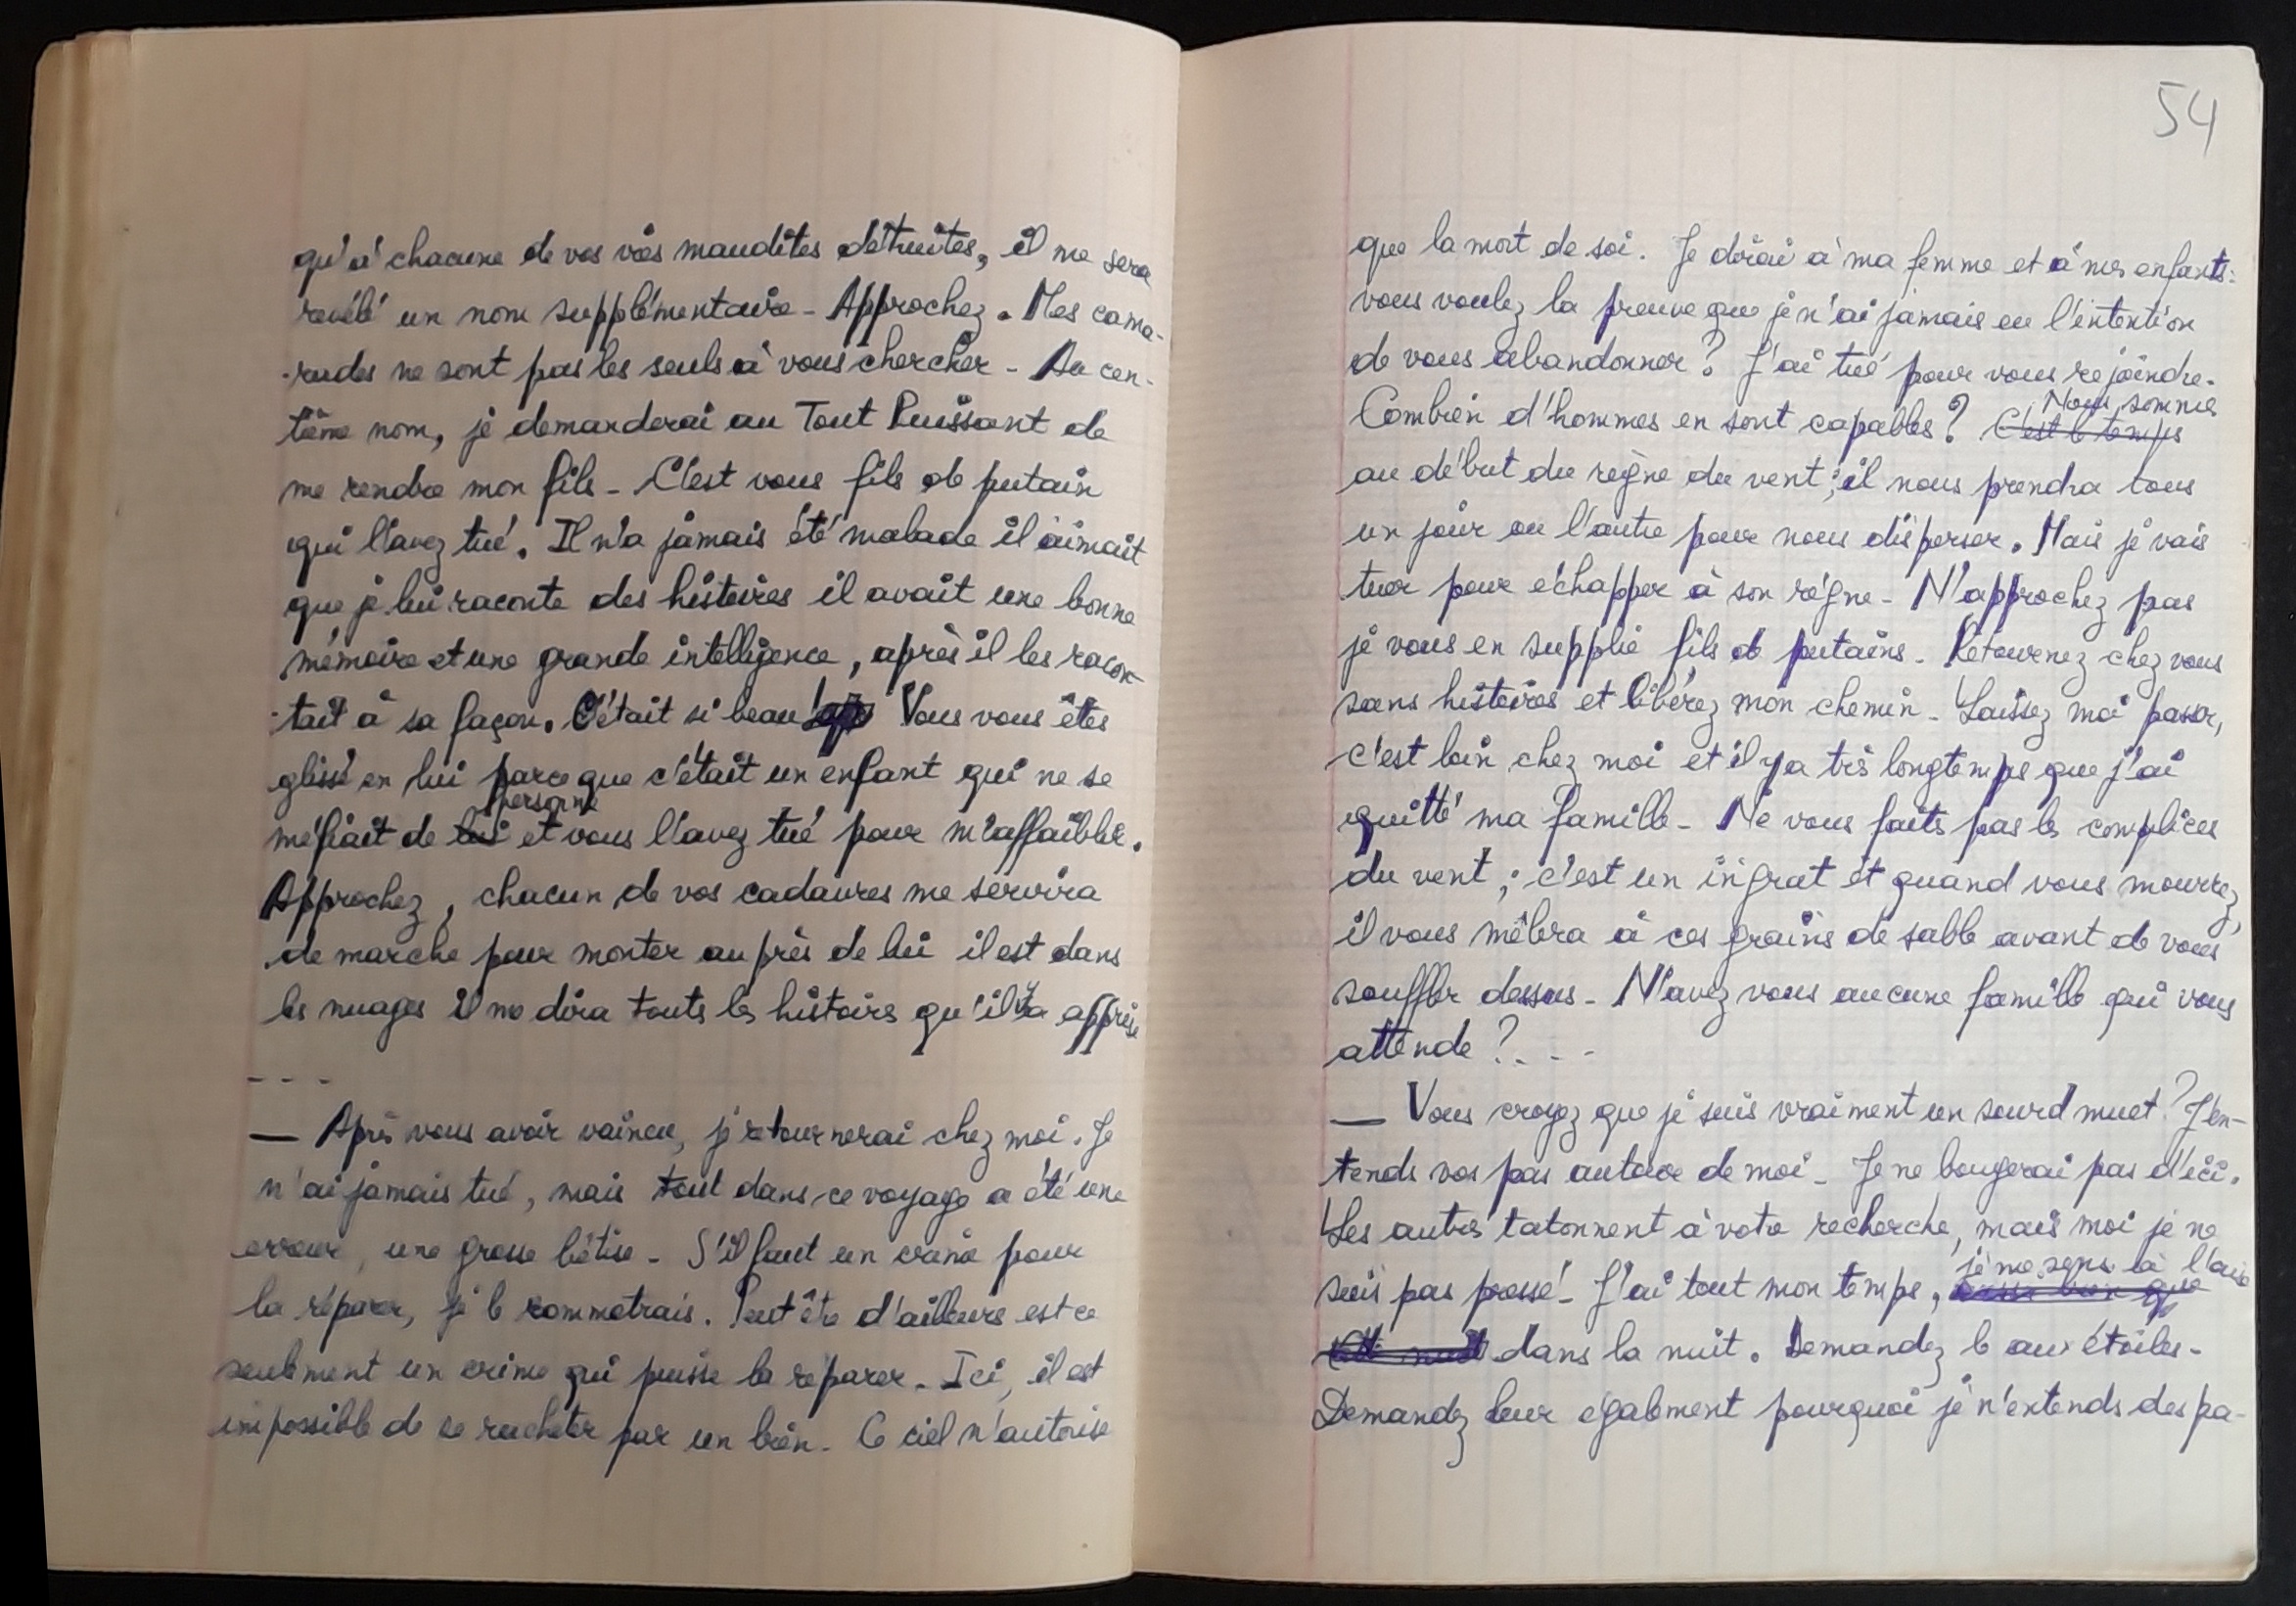 qu'à chacune de vos vies maudites détruites, il me sera
révélé un nom supplémentaire - Approchez. Mes cama-
-rades ne sont pas les seuls à vous chercher - Au cen-
tième nom, je demanderai au Tout Puissant de
me rendre mon fils - C'est vous fils de putain
qui l'avez tué. Il n'a jamais été malade il aimait
que je lui raconte des histoires il avait une bonne
mémoire et une grande intelligence, après il les racon-
-tait à sa façon. C'était si beau! Vous vous êtes
glissé en lui parce que c'était un enfant qui ne se
personne
méfiait de lui et vous l'avez tué pour m'affaiblir.
Approchez, chacun de vos cadavres me servira
de marche pour monter auprès de lui il est dans
les nuages il me dira touts les histoires qu'il y a apprise
- - -
— Après vous avoir vaincu, je retournerai chez moi. Je
n'ai jamais tué, mais tout dans ce voyage a été une
erreur, une grosse bêtise - S'il faut un crime pour
la réparer, je le commetrais. Peut être d'ailleurs est ce
seulement un crime qui puisse la réparer - Ici, il est
impossible de se racheter par un bien - Ce ciel n'autorise
54
que la mort de soi. Je dirai à ma femme et à mes enfants:
vous voulez la preuve que je n'ai jamais eu l'intention
de vous abandonner? J'ai tué pour vous rejoindre.
Nous sommes
Combien d'hommes en sont capables? C'est le temps
au début du règne du vent; il nous prendra tous
un jour ou l'autre pour nous disperser. Mais je vais
tuer pour échapper à son règne - N'approchez pas
je vous en supplie fils de putains - Retournez chez vous
sans histoires et libérez mon chemin - Laissez moi passer,
c'est loin chez moi et il y a très longtemps que j'ai
quitté ma famille - Ne vous faits pas les complices
du vent; c'est un ingrat et quand vous mourrez,
il vous mêlera à ces grains de sable avant de vous
souffler dessus - N'avez vous aucune famille qui vous
attende? - - -
— Vous croyez que je suis vraiment un sourd muet? J'en-
tends vos pas autour de moi - Je ne bougerai pas d'ici.
Les autres tatonnent à votre recherche, mais moi je ne
je me sens à l'aise
suis pas pressé - J'ai tout mon temps, aussi bien que
dans la nuit. Demandez le aux étoiles -
Demandez leur également pourquoi je n'entends des pa-